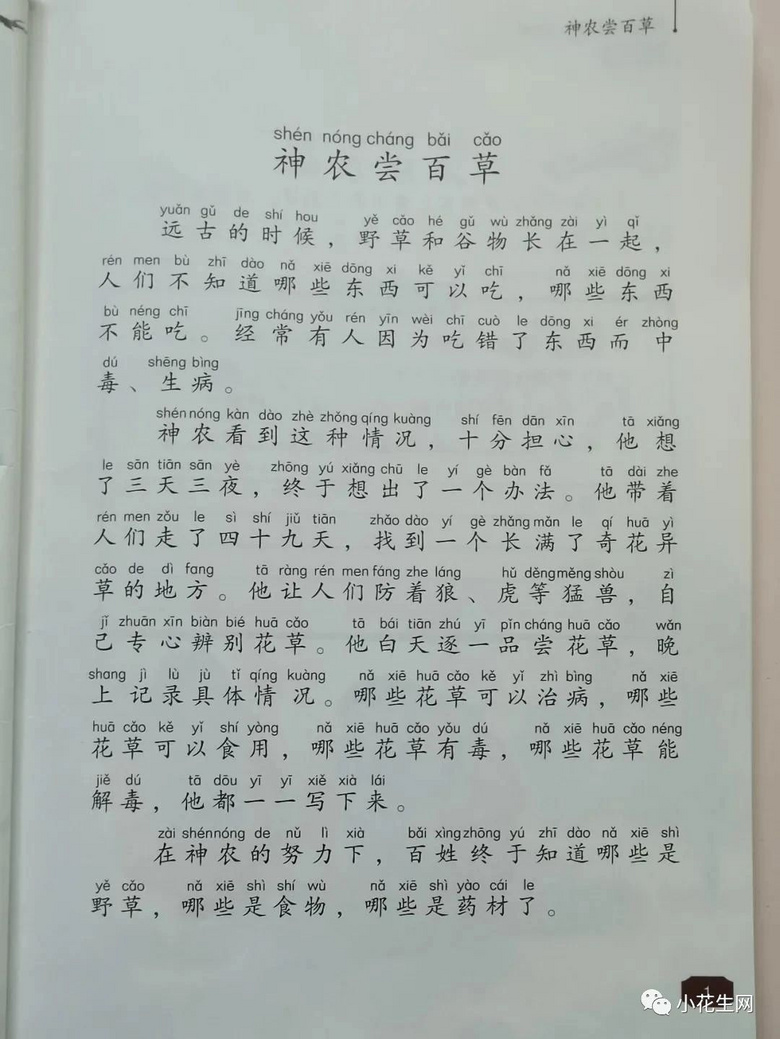 神农尝百草
shén nóng cháng bǎi cǎo
神农尝百草
yuǎn gǔ de shí hou yě cǎo hé gǔ wù zhǎng zài yì qǐ
远古的时候，野草和谷物长在一起，
rén men bù zhī dào nǎ xiē dōng xi kě yǐ chī nǎ xiē dōng xi
人们不知道哪些东西可以吃，哪些东西
bù néng chī jīng cháng yǒu rén yīn wèi chī cuò le dōng xi ér zhòng
不能吃。经常有人因为吃错了东西而中
dú shēng bìng
毒、生病。
shén nóng kàn dào zhè zhǒng qíng kuàng shí fēn dān xīn tā xiǎng
神农看到这种情况，十分担心，他想
le sān tiān sān yè zhōng yú xiǎng chū le yí gè bàn fǎ tā dài zhe
了三天三夜，终于想出了一个办法。他带着
rén men zǒu le sì shí jiǔ tiān zhǎo dào yí gè zhǎng mǎn le qí huā yì
人们走了四十九天，找到一个长满了奇花异
cǎo de dì fang tā ràng rén men fáng zhe láng hǔ děng měng shòu zì
草的地方。他让人们防着狼、虎等猛兽，自
jǐ zhuān xīn biàn bié huā cǎo tā bái tiān zhú yī pǐn cháng huā cǎo wǎn
己专心辨别花草。他白天逐一品尝花草，晚
shang jì lù jù tǐ qíng kuàng nǎ xiē huā cǎo kě yǐ zhì bìng nǎ xiē
上记录具体情况。哪些花草可以治病，哪些
huā cǎo kě yǐ shí yòng nǎ xiē huā cǎo yǒu dú nǎ xiē huā cǎo néng
花草可以食用，哪些花草有毒，哪些花草能
jiě dú tā dōu yī yī xiě xià lái
解毒，他都一一写下来。
zài shén nóng de nǔ lì xià bǎi xìng zhōng yú zhī dào nǎ xiē shì
在神农的努力下，百姓终于知道哪些是
yě cǎo nǎ xiē shì shí wù nǎ xiē shì yào cái le
野草，哪些是食物，哪些是药材了。
1
小花生网